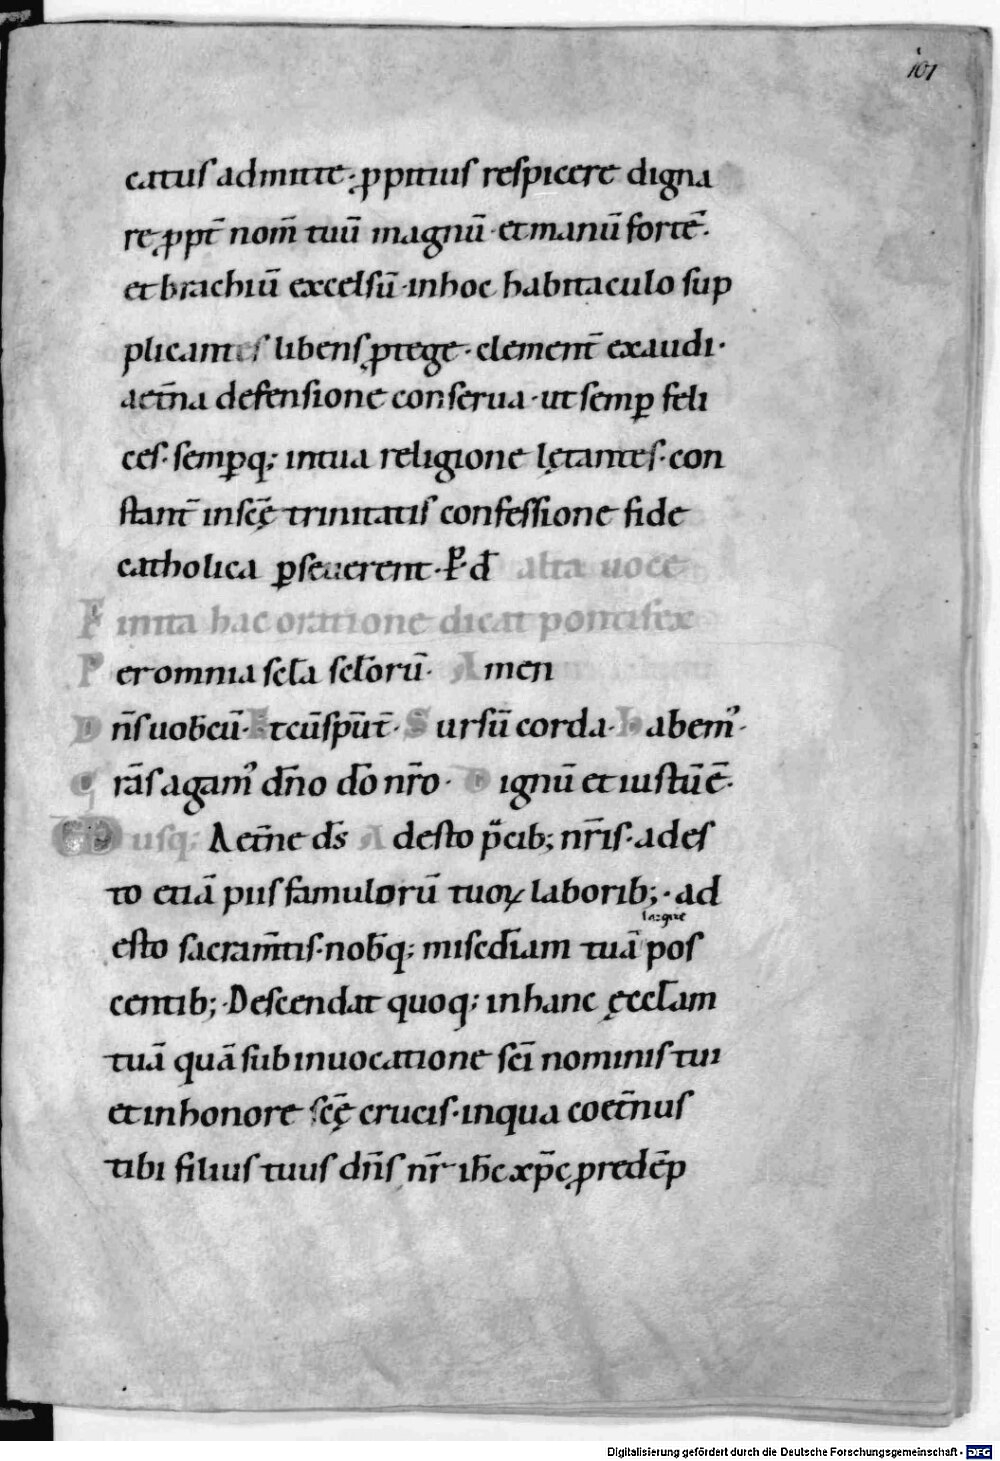 101
catus admitte · ppitius respicere digna
re · ppt̄ nom̄ tuū magnū · et manū fortē ·
et brachiū excelsū · in hoc habitaculo sup
plicantes libens ꝓtege · clement̄ exaudi ·
aet̄na defensione conserua · ut semꝑ feli
ces · semꝑq; in tua religione lętantes · con
stant̄ in scę̄ trinitatis confessione fide
catholica ꝑseuerent · P̄ d̄ alta uoce
Finita hac oratione dicat pontifex
Per omnia scl̄a scl̄orū · Amen
Dn̄s uob̄cū · Et cū sp̄u t̄ · Sursū corda · Habem᾿ ·
Grās agam᾿ dn̄o dō nr̄o · Dignū et iustū ē ·
usq; Aet̄ne ds̄ Adesto p̄cib; nr̄is · ades
to etiā piis famulorū tuoꝝ laborib; · ad
largire
esto sacram̄tis · nob̄q; misedīam tuā pos
centib; · Descendat quoq; in hanc ęccl̄am
tuā quā sub inuocatione sc̄i nominis tui
et in honore scę̄ crucis · in qua coet̄nus
tibi filius tuus dn̄s nr̄ ih̄c xp̄c ꝓ redēp
Digitalisierung gefördert durch die Deutsche Forschungsgemeinschaft - DFG